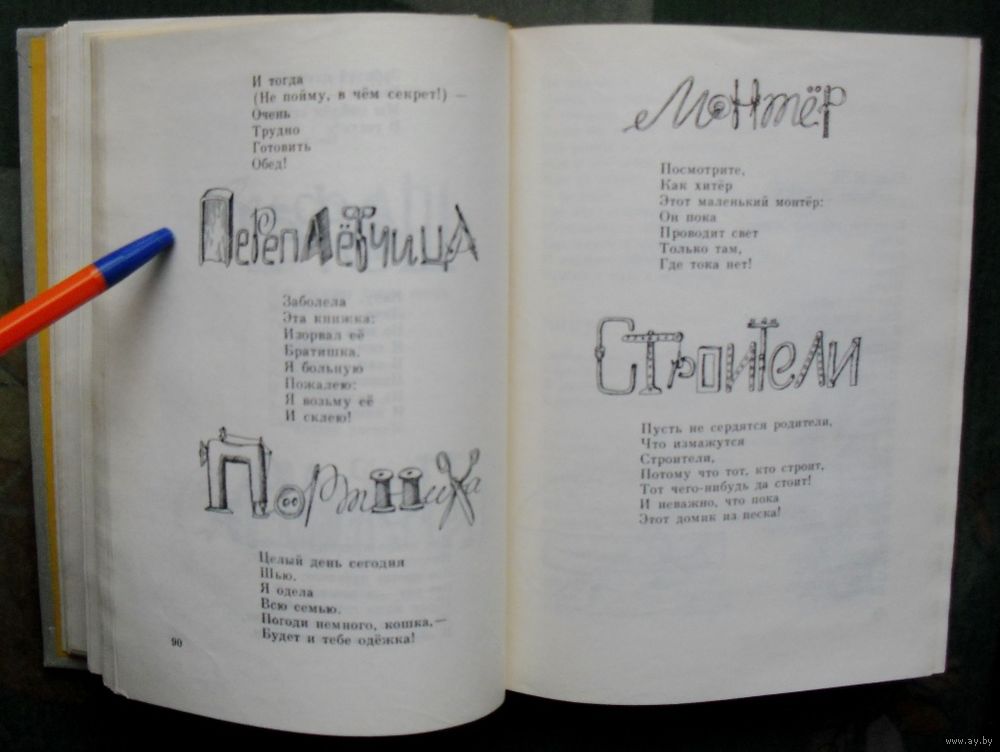 И тогда
(Не пойму, в чём секрет!) —
Очень
Трудно
Готовить
Обед!
ПЕРЕПЛЁТЧИЦА
Заболела
Эта книжка:
Изорвал её
Братишка.
Я больную
Пожалею:
Я возьму её
И склею!
Портниха
Целый день сегодня
Шью.
Я одела
Всю семью.
Погоди немного, кошка,—
Будет и тебе одёжка!
90
Монтёр
Посмотрите,
Как хитёр
Этот маленький монтёр:
Он пока
Проводит свет
Только там,
Где тока нет!
СТРОИТЕЛИ
Пусть не сердятся родители,
Что измажутся
Строители,
Потому что тот, кто строит,
Тот чего-нибудь да стоит!
И неважно, что пока
Этот домик из песка!
www.ay.by